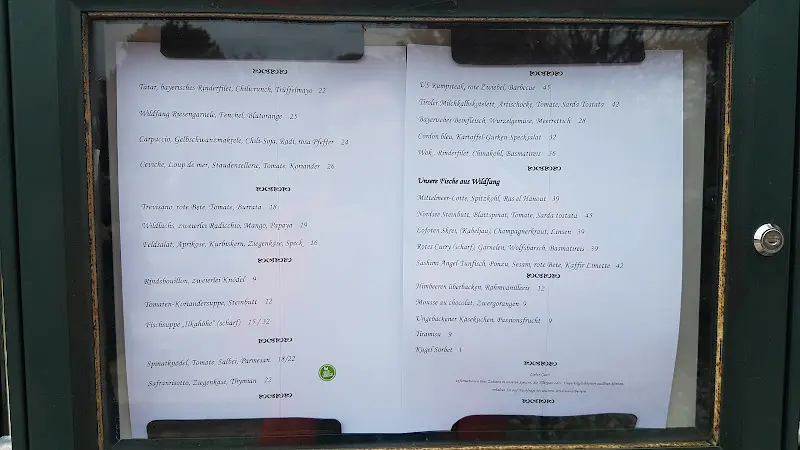 Tatar, bayerisches Rinderfilet, Chilicrunch, Trüffelmayo 22
Wildfang Riesengarnele, Fenchel, Blutorange 25
Carpaccio, Gelbschwanzmakrele, Chili-Soja, Radi, rosa Pfeffer 24
Ceviche, Loup de mer, Staudensellerie, Tomate, Koriander 26
Trevisano, rote Bete, Tomate, Burrata 18
Wildlachs, zweierlei Radicchio, Mango, Papaya 19
Feldsalat, Aprikose, Kürbiskern, Ziegenkäse, Speck 16
Rindsbouillon, zweierlei Knödel 9
Tomaten-Koriandersuppe, Steinbutt 12
Fischsuppe „Ilkahöhe“ (scharf) 15 / 32
Spinatknödel, Tomate, Salbei, Parmesan 18/22
Safranrisotto, Ziegenkäse, Thymian 22
US Rumpsteak, rote Zwiebel, Barbecue 45
Tiroler Milchkalbskotelett, Artischocke, Tomate, Sarda Tostata 42
Bayerisches Beinfleisch, Wurzelgemüse, Meerrettich 28
Cordon bleu, Kartoffel-Gurken-Specksalat 32
Wok, Rinderfilet, Chinakohl, Basmatireis 36
Unsere Fische aus Wildfang
Mittelmeer-Lotte, Spitzkohl, Ras el Hanout 39
Nordsee Steinbutt, Blattspinat, Tomate, Sarda tostata 45
Lofoten Skrei, (Kabeljau), Champagnerkraut, Linsen 39
Rotes Curry (scharf), Garnelen, Wolfsbarsch, Basmatireis 39
Sashimi Angel-Tunfisch, Ponzu, Sesam, rote Bete, Kaffir Limette 42
Himbeeren überbacken, Rahmvanilleeis 12
Mousse au chocolat, Zwergorangen 9
Ungebackener Käsekuchen, Passionsfrucht 9
Tiramisu 9
Kugel Sorbet 3